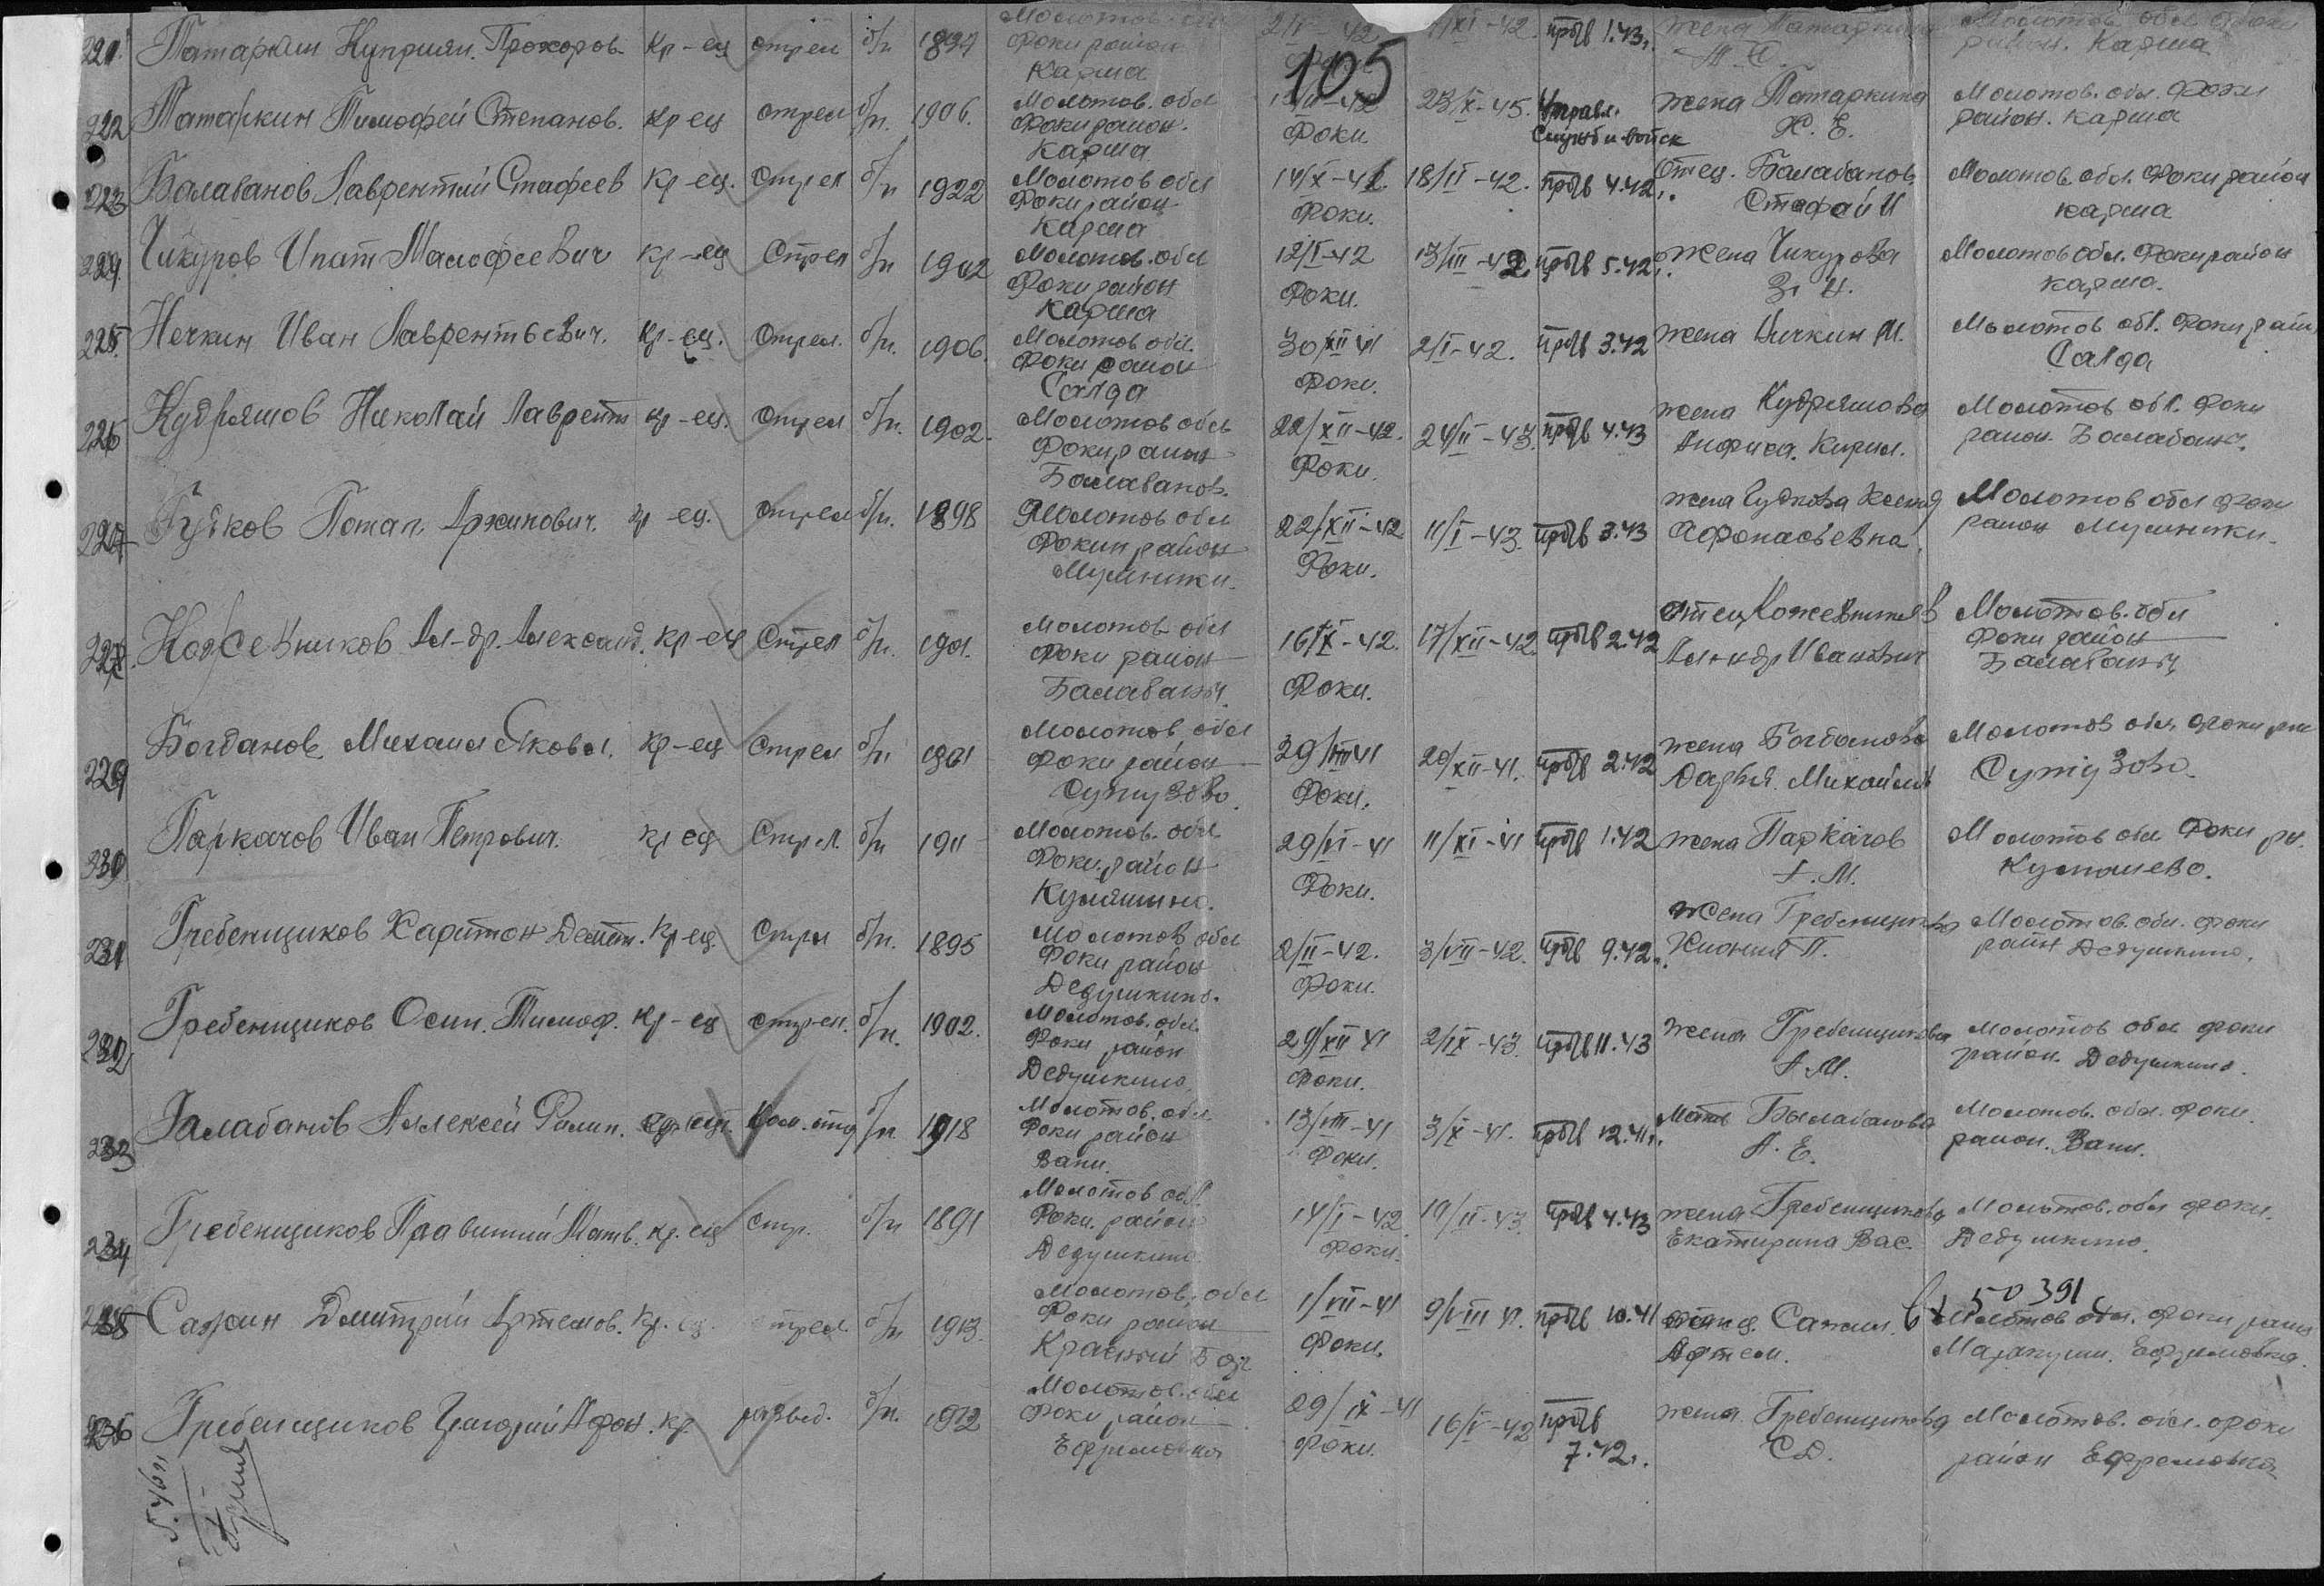 105
221. Татаркин Куприян. Прохоров. кр-ец стрел б/п 1897 Молотов. обл Фоки район Карша 42 /XI-42. проп 1.43г. жена Татаркина Молотов обл Фоки район. Карша
222 Татаркин Тимофей Степанов. кр ец стрел б/п. 1906. Молотов. обл Фоки район. Карша Фоки 23/X-45. Управл. Служб и войск жена Татаркина Х. Е. Молотов. обл. Фоки район. Карша
223 Балабанов Лаврентий Стафеев кр-ец. Стрел б/п 1922 Молотов обл Фоки район Карша 14/X-41 Фоки. 18/II-42. проп 4.42г. Отец. Балабанов. Стафей И Молотов. обл. Фоки район карша
224. Чикуров Ипат Малофеевич кр-ец Стрел б/п 1902 Молотов. обл Фоки район Карша 12/I-42 Фоки. 13/III-42. проп 5.42г. жена Чикурова З. И. Молотов обл. Фоки район карша.
225. Нечкин Иван Лаврентьевич. кр-ец. Стрел. б/п. 1906. Молотов обл. Фоки район Салда 30/XII 41 Фоки. 2/I-42. проп 3.42 жена Ничкин М. Молотов обл. Фоки райн Салда
226 Кудряшов Николай Лаврент кр-ец. Стрел б/п. 1902. Молотов обл Фоки район Балабанов. 22/XII-42. Фоки. 24/II-43. проп 4.43 жена Кудряшова Анфиса. Кирил. Молотов обл. Фоки район Балабаны.
227 Гудков Потап. Архипович. кр-ец. стрел б/п. 1898 Молотов обл Фокин район Мушники. 22/XII-42 Фоки. 11/I-43. проп 3.43 жена Гудкова Ксенья Афонасьевна. Молотов обл Фоки район Мушники.
228. Кожевников Ал-др. Александ. кр-ец Стрел б/п. 1901. Молотов обл Фоки район Балабаны. 16/IX-42. Фоки. 17/XII-42 проп 2.42 отец Кожевников Ал-ндр Иванович Молотов. обл Фоки район Балабаны
229 Богданов Михаил Яковл. кр-ец Стрел б/п 1901 Молотов обл Фоки район Сутузово. 29/VIII 41 Фоки. 20/XII-41. проп 2.42 жена Богданова Дарья Михайлов Молотов обл. Фоки рай Сутузово.
230 Паркачов Иван Петрович. кр ец Стрел. б/п 1911 Молотов. обл Фоки. район Кумяшино. 29/VI-41 Фоки. 11/XI-41 проп 1.42 жена Паркачов А. М. Молотов обл Фоки рн. Кумашево.
231 Гребенщиков Харитон Демент. кр-ец Стрел б/п. 1895 Молотов обл Фоки район Дедушкино. 2/II-42. Фоки. 3/VII-42. проп 9.42г. Жена Гребенщиков Хиония П. Молотов. обл. Фоки район Дедушкино.
232 Гребенщиков Осип. Тимоф. кр-ец стрел. б/п. 1902. Молотов. обл. Фоки район Дедушкино. 29/XII 41 Фоки. 2/IX-43. проп 11.43 жена Гребенщикова А. М. Молотов обл Фоки район. Дедушкино.
233 Балабанов Алексей Филип. кр. ец. Ком. отд б/п 1918 Молотов. обл Фоки район Вани. 13/VIII-41 Фоки. 3/X-41. проп 12.41г. Мать Былабанова А. Е. Молотов. обл. Фоки. район. Вани.
234 Гребенщиков Матв. кр. ец стр. б/п 1891 Молотов обл. Фоки. район Дедушкино 14/I-42 Фоки. 10/II-43. проп 4.43 жена Гребенщикова Екатирина Вас. Молотов. обл Фоки. Дедушкино.
235 Сажин Дмитрий Артемов. кр. ец. стрел. б/п 1913. Молотов. обл Фоки район Красный Бор 1/VII-41 Фоки. 9/VIII 41. проп 10.41 отец. Сажин. Артем. 50391 Молотов обл. Фоки район Маракуши. Ефремовка.
236 Гребенщиков Григорий Афон. кр. развед. б/п. 1912 Молотов. обл Фоки район Ефремовка 29/IX-41 Фоки. 16/V-42 проп 7.42г. жена Гребенщикова С Д. Молотов. обл. Фоки район Ефремовка